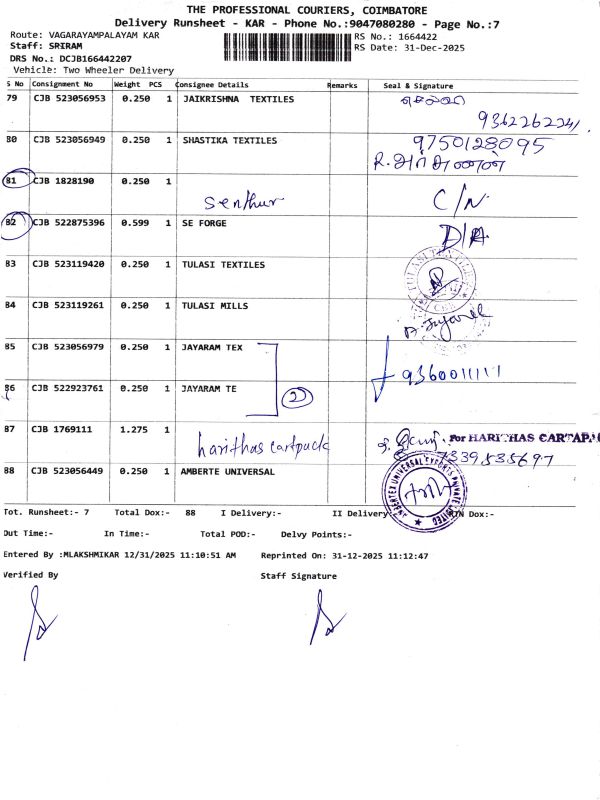 THE PROFESSIONAL COURIERS, COIMBATORE
Delivery Runsheet - KAR - Phone No.:9047080280 - Page No.:7
Route: VAGARAYAMPALAYAM KAR RS No.: 1664422
Staff: SRIRAM RS Date: 31-Dec-2025
DRS No.: DCJB166442207
Vehicle: Two Wheeler Delivery
S No Consignment No Weight PCS Consignee Details Remarks Seal & Signature
79 CJB 523056953 0.250 1 JAIKRISHNA TEXTILES
9362262241
80 CJB 523056949 0.250 1 SHASTIKA TEXTILES 9750128095
81 CJB 1828190 0.250 1
Senthur C/N
82 CJB 522875396 0.599 1 SE FORGE D/A
83 CJB 523119420 0.250 1 TULASI TEXTILES
84 CJB 523119261 0.250 1 TULASI MILLS
85 CJB 523056979 0.250 1 JAYARAM TEX
9360011111
86 CJB 522923761 0.250 1 JAYARAM TE 2
87 CJB 1769111 1.275 1
harithas cartpack For HARITHAS CARTAPA
7339535697
88 CJB 523056449 0.250 1 AMBERTE UNIVERSAL
Tot. Runsheet:- 7 Total Dox:- 88 I Delivery:- II Delivery: Dox:-
Out Time:- In Time:- Total POD:- Delvy Points:-
Entered By :MLAKSHMIKAR 12/31/2025 11:10:51 AM Reprinted On: 31-12-2025 11:12:47
Verified By Staff Signature